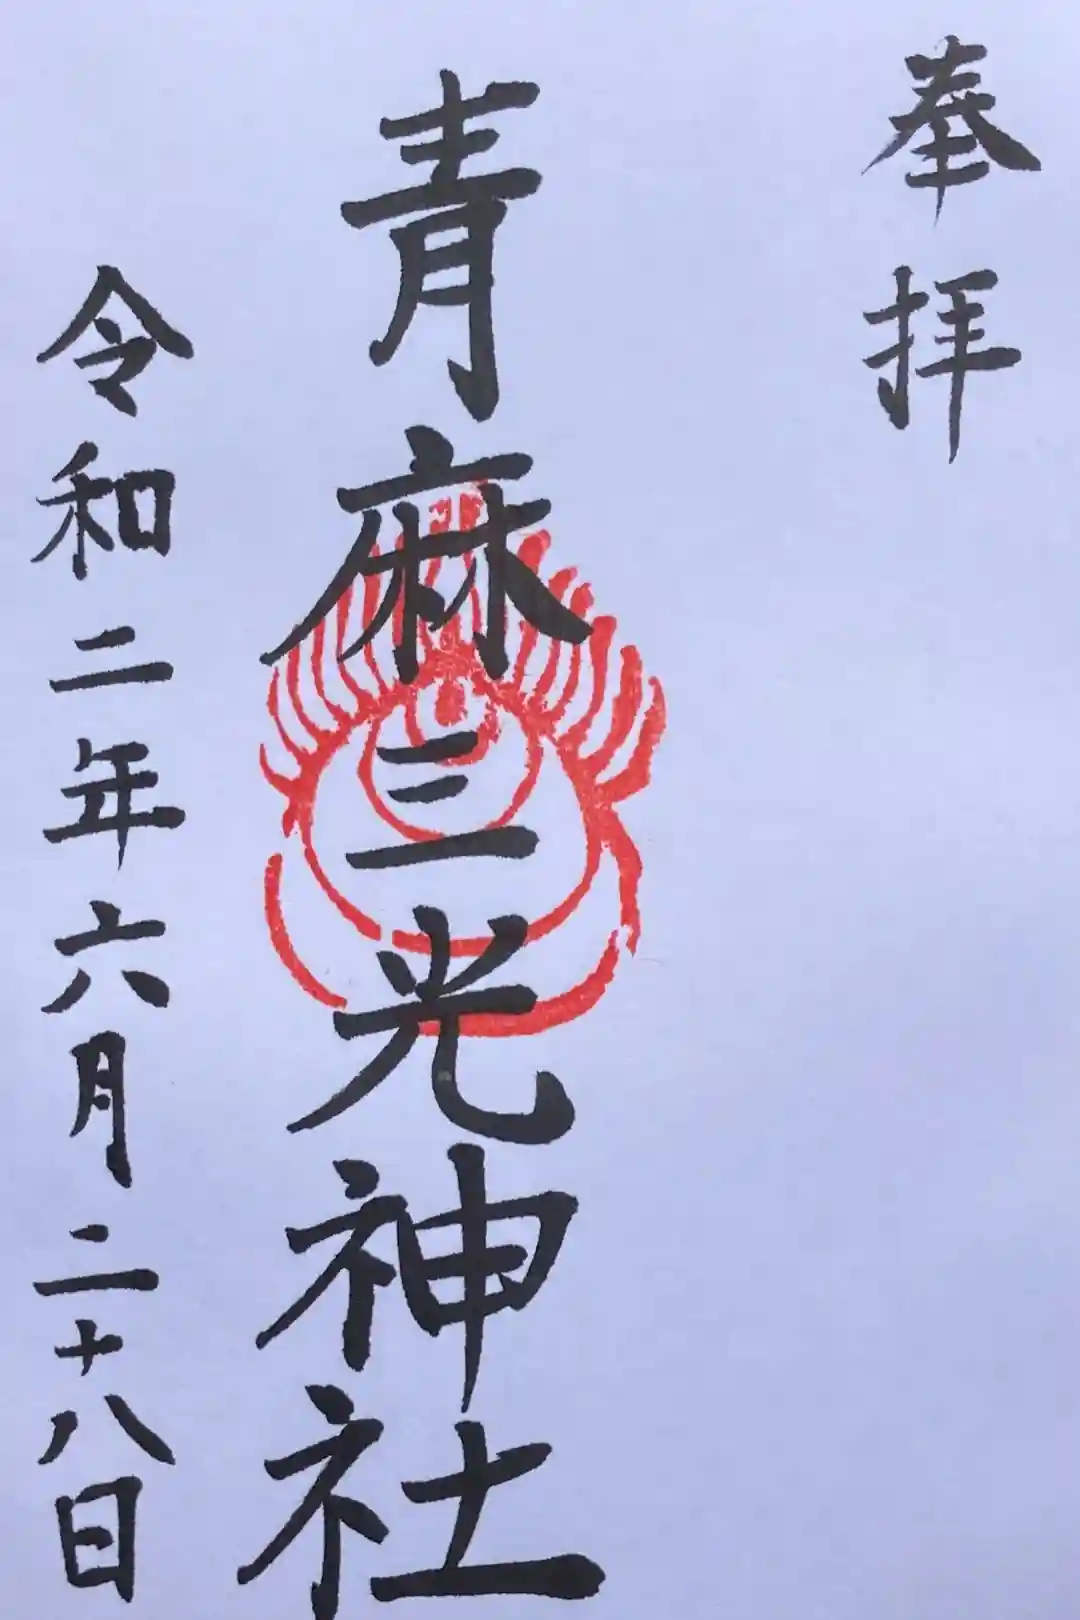 奉拝
青麻三光神社
令和二年六月二十八日